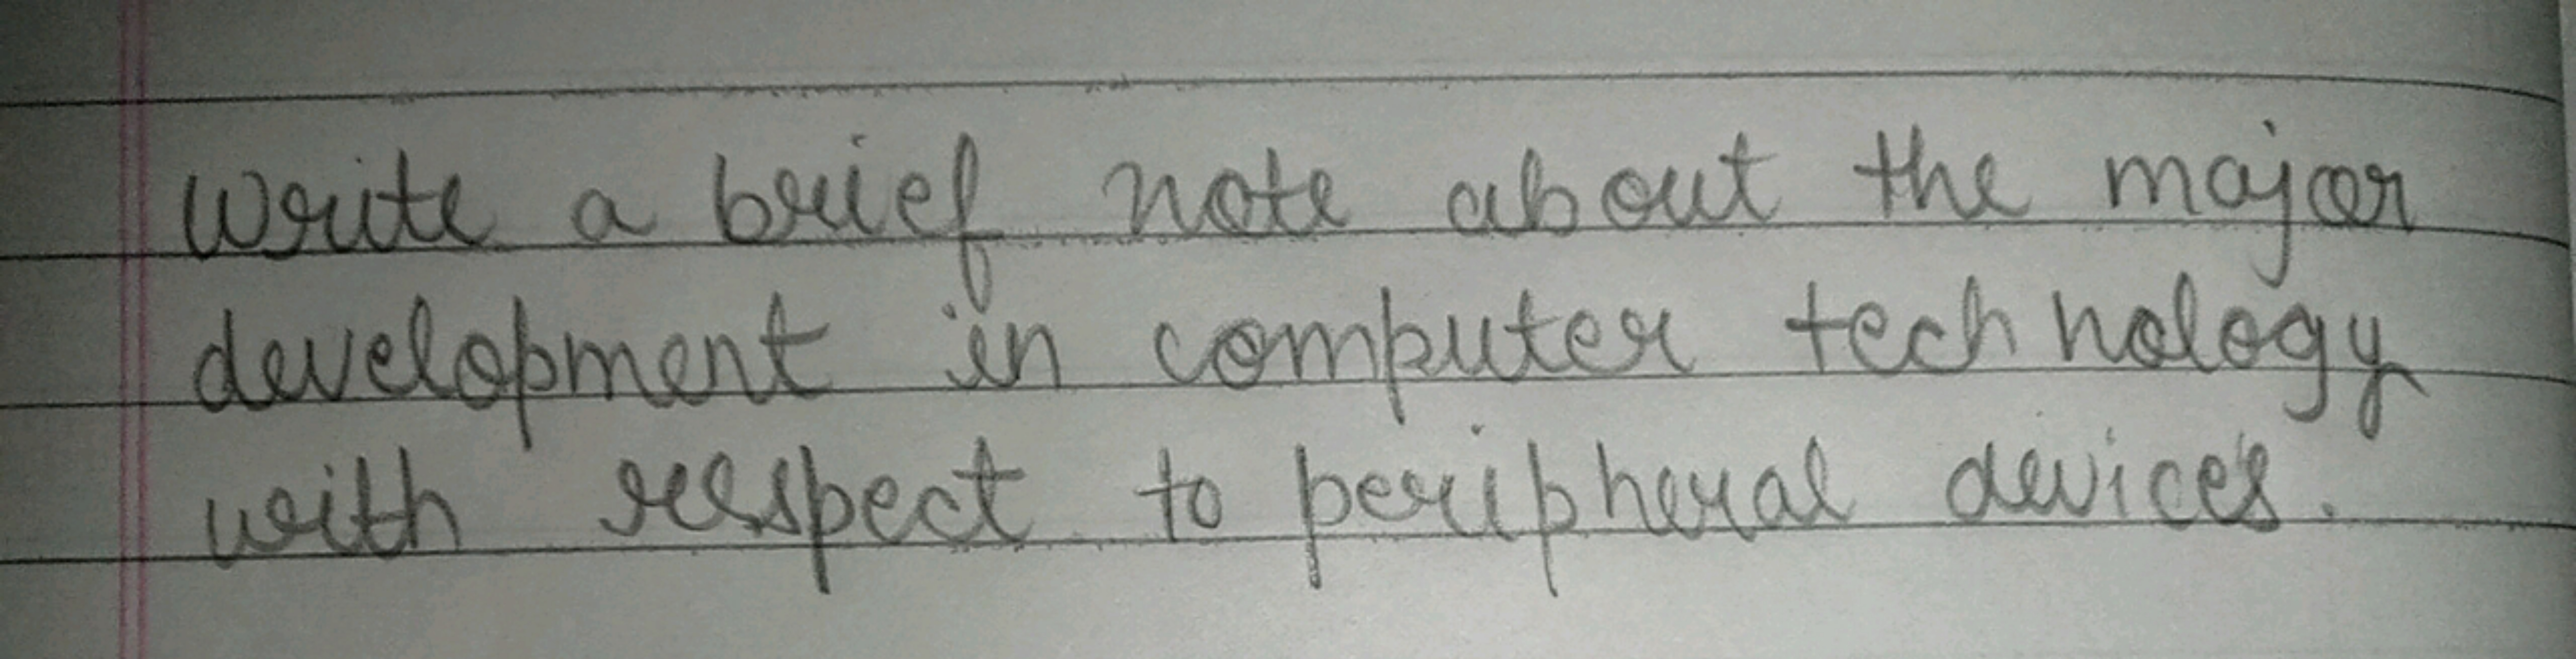 Write a brief note about the major
development in computer technology
with respect to peripheral devices.